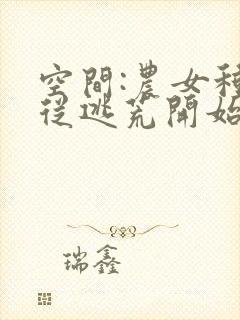 空間:農女種
從逃荒開始
瑞鑫